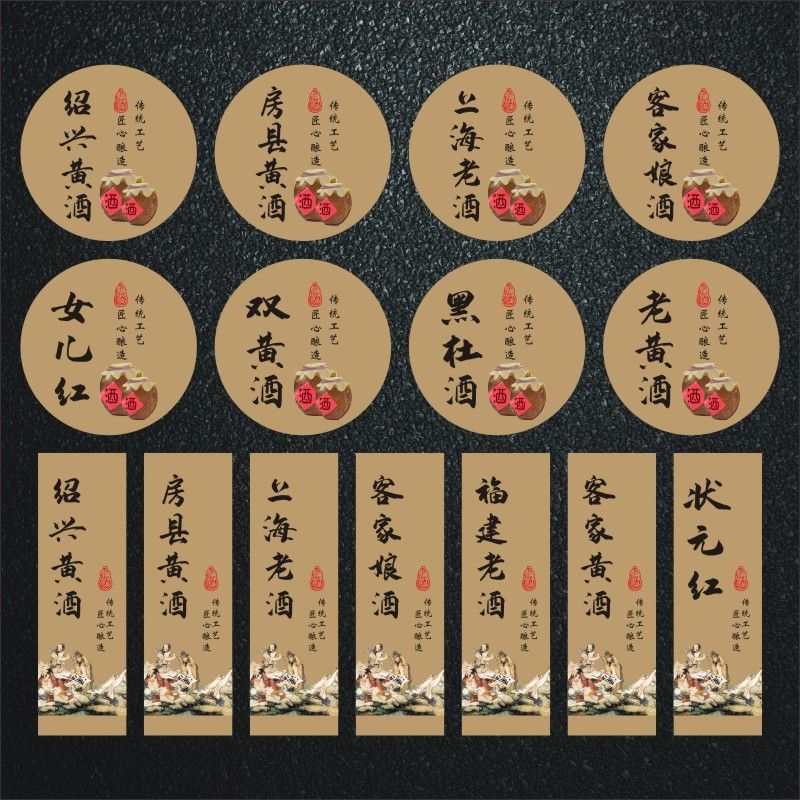 绍兴黄酒
传统工艺
匠心酿造
酒
酒
房县黄酒
传统工艺
匠心酿造
酒
酒
上海老酒
传统工艺
匠心酿造
酒
酒
客家娘酒
传统工艺
匠心酿造
酒
酒
女儿红
传统工艺
匠心酿造
酒
酒
双黄酒
传统工艺
匠心酿造
酒
酒
黑杜酒
传统工艺
匠心酿造
酒
酒
老黄酒
传统工艺
匠心酿造
酒
酒
绍兴黄酒
传统工艺
匠心酿造
房县黄酒
传统工艺
匠心酿造
上海老酒
传统工艺
匠心酿造
客家娘酒
传统工艺
匠心酿造
福建老酒
传统工艺
匠心酿造
客家黄酒
传统工艺
匠心酿造
状元红
传统工艺
匠心酿造